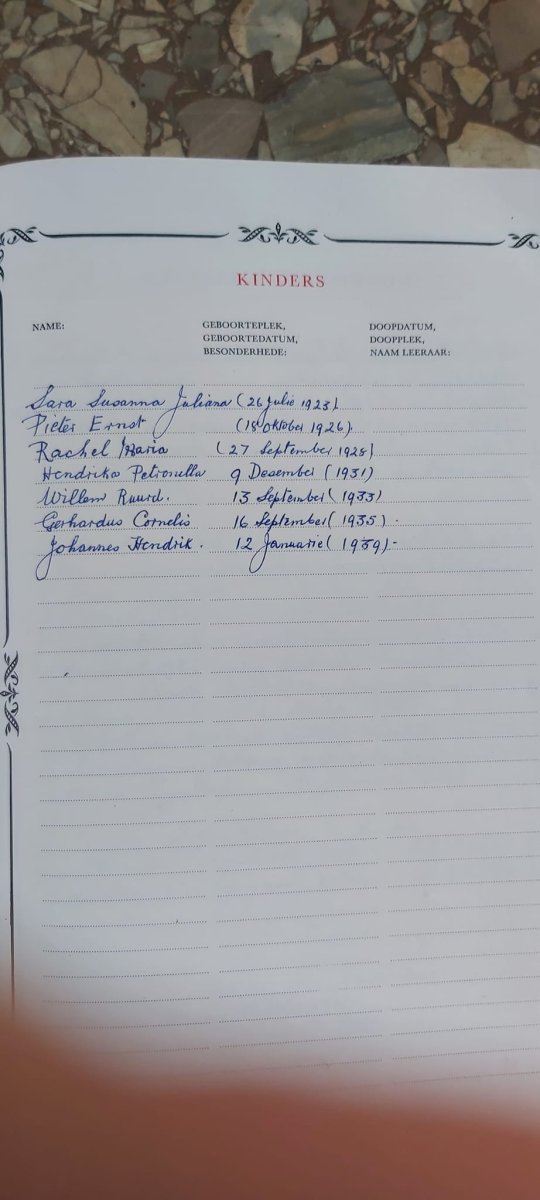 KINDERS
NAME: GEBOORTEPLEK, DOOPDATUM,
GEBOORTEDATUM, DOOPPLEK,
BESONDERHEDE: NAAM LEERAAR:
Sara Susanna Juliana (26 Julie 1923)
Pieter Ernst (18 Oktober 1926).
Rachel Maria (27 September 1928)
Hendrika Petronella 9 Desember (1931)
Willem Ruurd. 13 September (1933)
Gerhardus Cornelis 16 September (1935).
Johannes Hendrik. 12 Januarie (1939)-